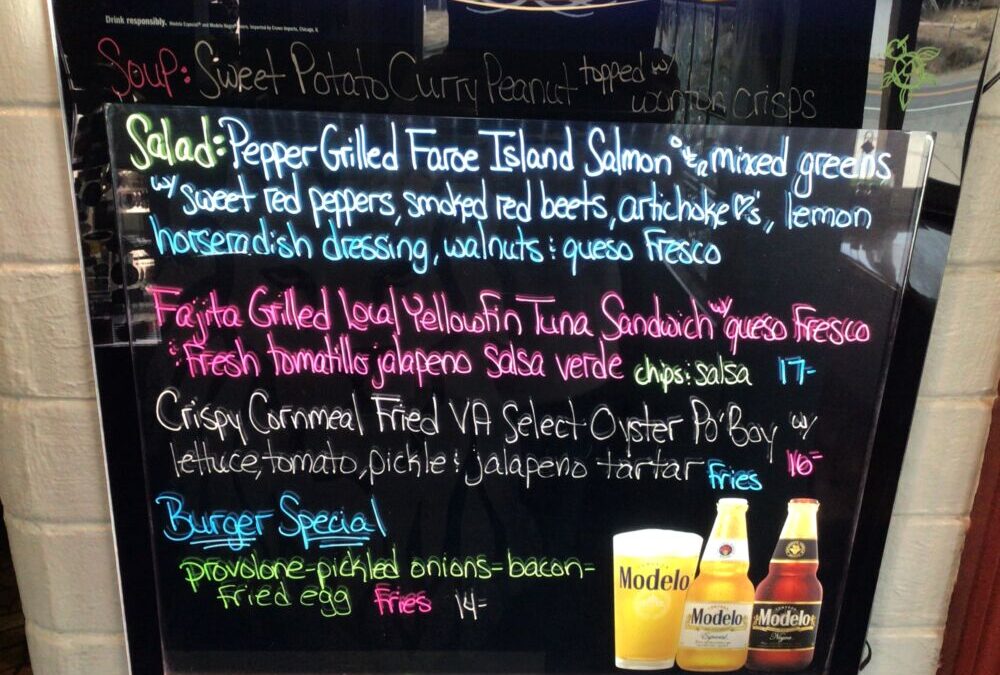 Drink responsibly. Modelo Especial® and Modelo Negra® Beers. Imported by Crown Imports, Chicago, IL
Soup: Sweet Potato Curry Peanut topped w/ wonton crisps
Salad: Pepper Grilled Faroe Island Salmon on mixed greens
w/ sweet red peppers, smoked red beets, artichoke ♡'s, lemon
horseradish dressing, walnuts : queso Fresco
Fajita Grilled Local Yellowfin Tuna Sandwich w/ queso Fresco
: Fresh tomatillo jalapeno salsa verde chips : salsa 17-
Crispy Cornmeal Fried VA Select Oyster Po'Boy w/
lettuce, tomato, pickle : jalapeno tartar Fries 16-
Burger Special
provolone-pickled onions-bacon-
fried egg Fries 14-
Modelo
Modelo
Especial
Modelo
Negra